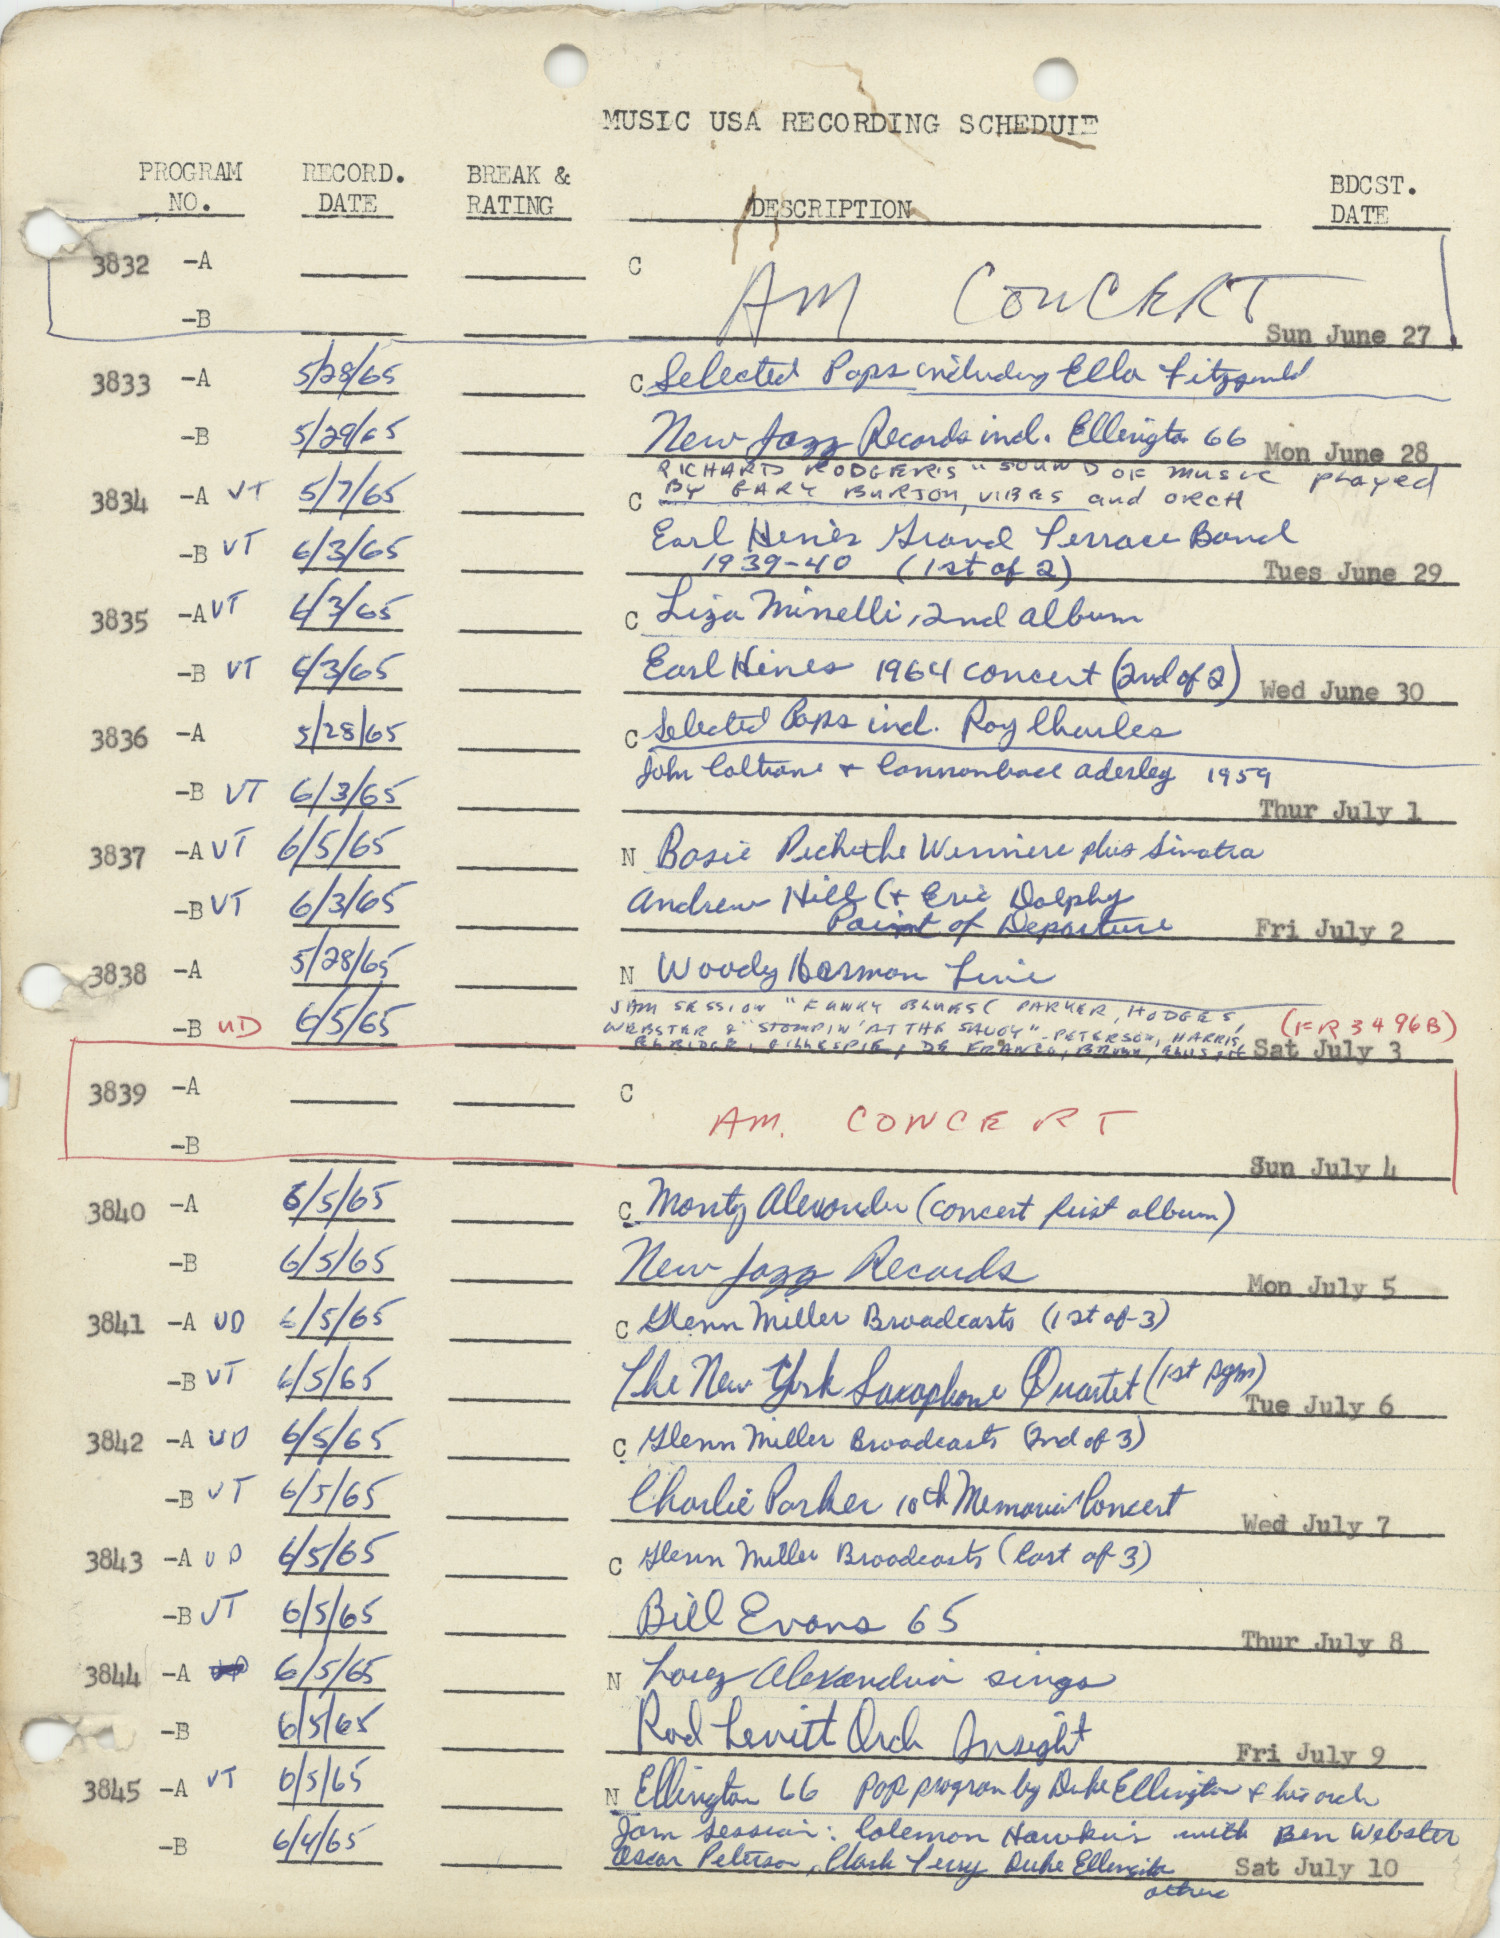 MUSIC USA RECORDING SCHEDULE
PROGRAM NO. RECORD. DATE BREAK & RATING DESCRIPTION BDCST. DATE
3832 -A C
-B AM CONCERT Sun June 27
3833 -A 5/28/65 C Selected Pops including Ella Fitzgerald
-B 5/29/65 New Jazz Records incl. Ellington 66 Mon June 28
RICHARD RODGERS "SOUND OF MUSIC played
3834 -A VT 5/7/65 C BY GARY BURTON, VIBES and ORCH
-B VT 6/3/65 Earl Hines Grand Terrace Band
1939-40 (1st of 2) Tues June 29
3835 -A VT 6/3/65 C Liza Minelli, 2nd album
-B VT 6/3/65 Earl Hines 1964 concert (2nd of 2) Wed June 30
3836 -A 5/28/65 C Selected Pops incl. Ray Charles
-B VT 6/3/65 John Coltrane + Cannonball Aderley 1959 Thur July 1
3837 -A VT 6/5/65 N Basie Picks the Winners plus Sinatra
-B VT 6/3/65 Andrew Hill (+ Eric Dolphy
Point of Departure Fri July 2
3838 -A 5/28/65 N Woody Herman Live
-B UD 6/5/65 JAM SESSION "FUNKY BLUES ( PARKER, HODGES,
WEBSTER & "STOMPIN' AT THE SAVOY" - PETERSON, HARRIS, (FR 3496B)
ELDRIDGE, GILLESPIE, DE FRANCO, BROWN, ELLIS, Sat July 3
3839 -A C
-B AM. CONCERT Sun July 4
3840 -A 6/5/65 C Monty Alexander (concert first album)
-B 6/5/65 New Jazz Records Mon July 5
3841 -A UD 6/5/65 C Glenn Miller Broadcasts (1st of 3)
-B VT 6/5/65 The New York Saxophone Quartet (1st pgm) Tue July 6
3842 -A UD 6/5/65 C Glenn Miller Broadcasts (2nd of 3)
-B VT 6/5/65 Charlie Parker 10th Memorial Concert Wed July 7
3843 -A UD 6/5/65 C Glenn Miller Broadcasts (last of 3)
-B VT 6/5/65 Bill Evans 65 Thur July 8
3844 -A 6/5/65 N Lorez Alexandria sings
-B 6/5/65 Rod Levitt Orch Insight Fri July 9
3845 -A VT 6/5/65 N Ellington 66 pop program by Duke Ellington & his orch
-B 6/4/65 Jam Session: Coleman Hawkins with Ben Webster
Oscar Peterson, Clark Terry Duke Ellington Sat July 10
others